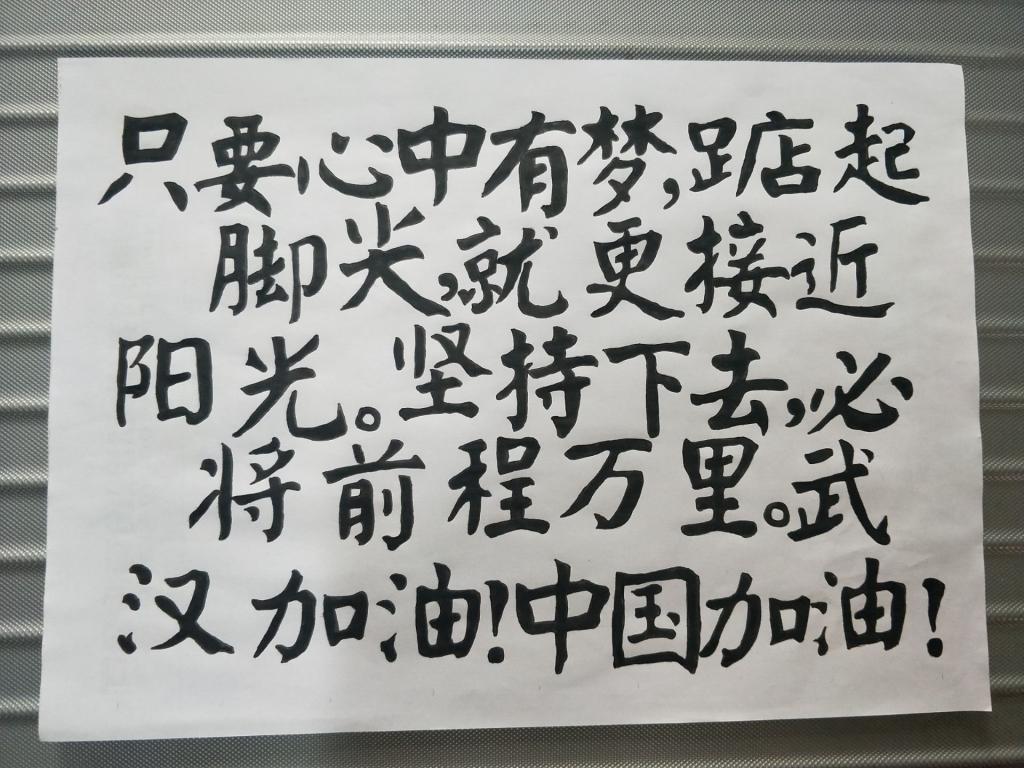 只要心中有梦,踮起
脚尖,就更接近
阳光。坚持下去,必
将前程万里。武
汉加油!中国加油!